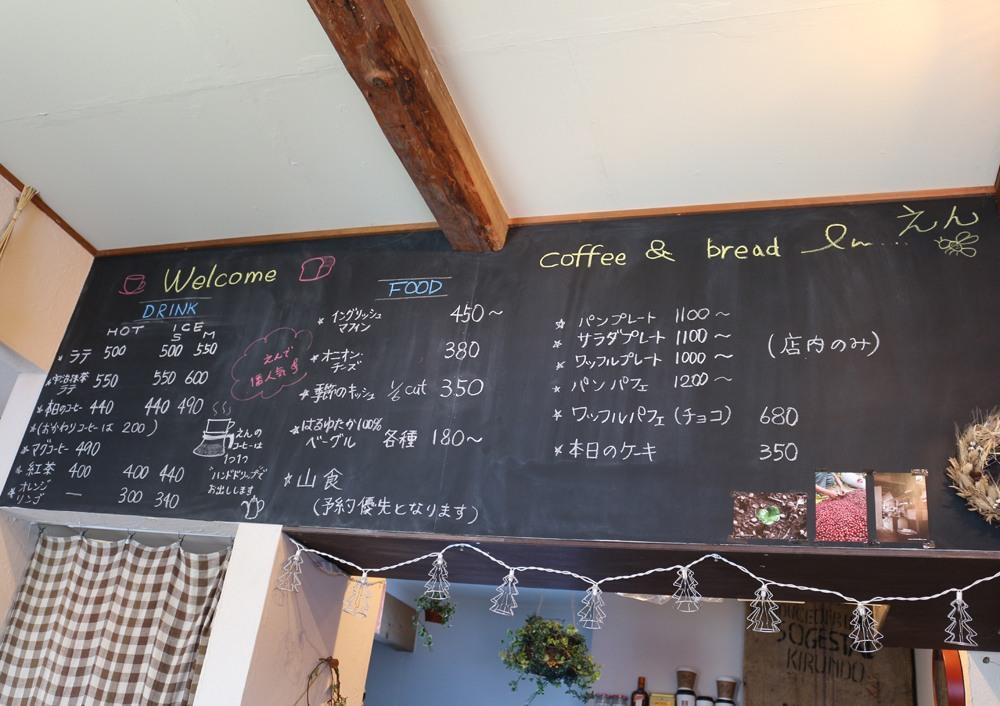 Welcome
DRINK
HOT ICE
S M
*ラテ 500 500 550
*宇治抹茶ラテ 550 550 600
*本日のコーヒー 440 440 490
*(おかわりコーヒーは 200)
*マグコーヒー 490
*紅茶 400 400 440
*オレンジ
リンゴ — 300 340
えんで
1番人気
えんの
コーヒーは
1つ1つ
ハンドドリップで
お出しします
FOOD
*イングリッシュ
マフィン 450〜
*オニオン・
チーズ 380
*季節のキッシュ 1/2cut 350
*はるゆたか100%
ベーグル 各種 180〜
*山食
(予約優先となります)
coffee & bread えん
*パンプレート 1100〜
*サラダプレート 1100〜
*ワッフルプレート 1000〜
(店内のみ)
*パンパフェ 1200〜
*ワッフルパフェ(チョコ) 680
*本日のケーキ 350
SOGESTAL
KIRUNDO